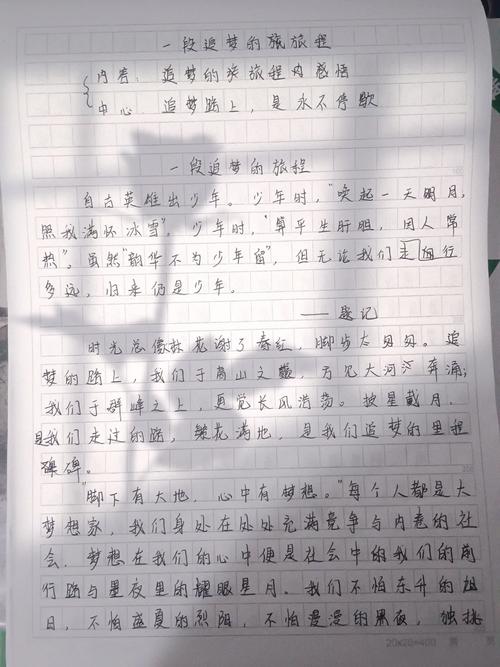 一段追梦的旅旅程
内容：追梦的旅程内感悟
中心：追梦路上，是永不停歇
一段追梦的旅程
自古英雄出少年。少年时，“唤起一天明月，
照我满怀冰雪”，少年时，“算平生肝胆，因人常
热”。虽然“韶华不为少年留”，但无论我们走行
多远，归来仍是少年。
——题记
时光总像林花谢了春红，脚步太匆匆。追
梦的路上，我们于高山之巅，方见大河奔涌；
我们于群峰之上，更觉长风浩荡。披星戴月，
是我们走过的路，繁花满地，是我们追梦的里程
碑。
“脚下有大地，心中有梦想。”每个人都是大
梦想家，我们身处在处处充满竞争与内卷的社
会，梦想在我们的心中便是社会中的我们的前
行路与星夜里的耀眼星月。我们不怕东升的旭
日，不怕盛夏的烈阳，不怕漫漫的黑夜，独挑
20×20=400 第 页